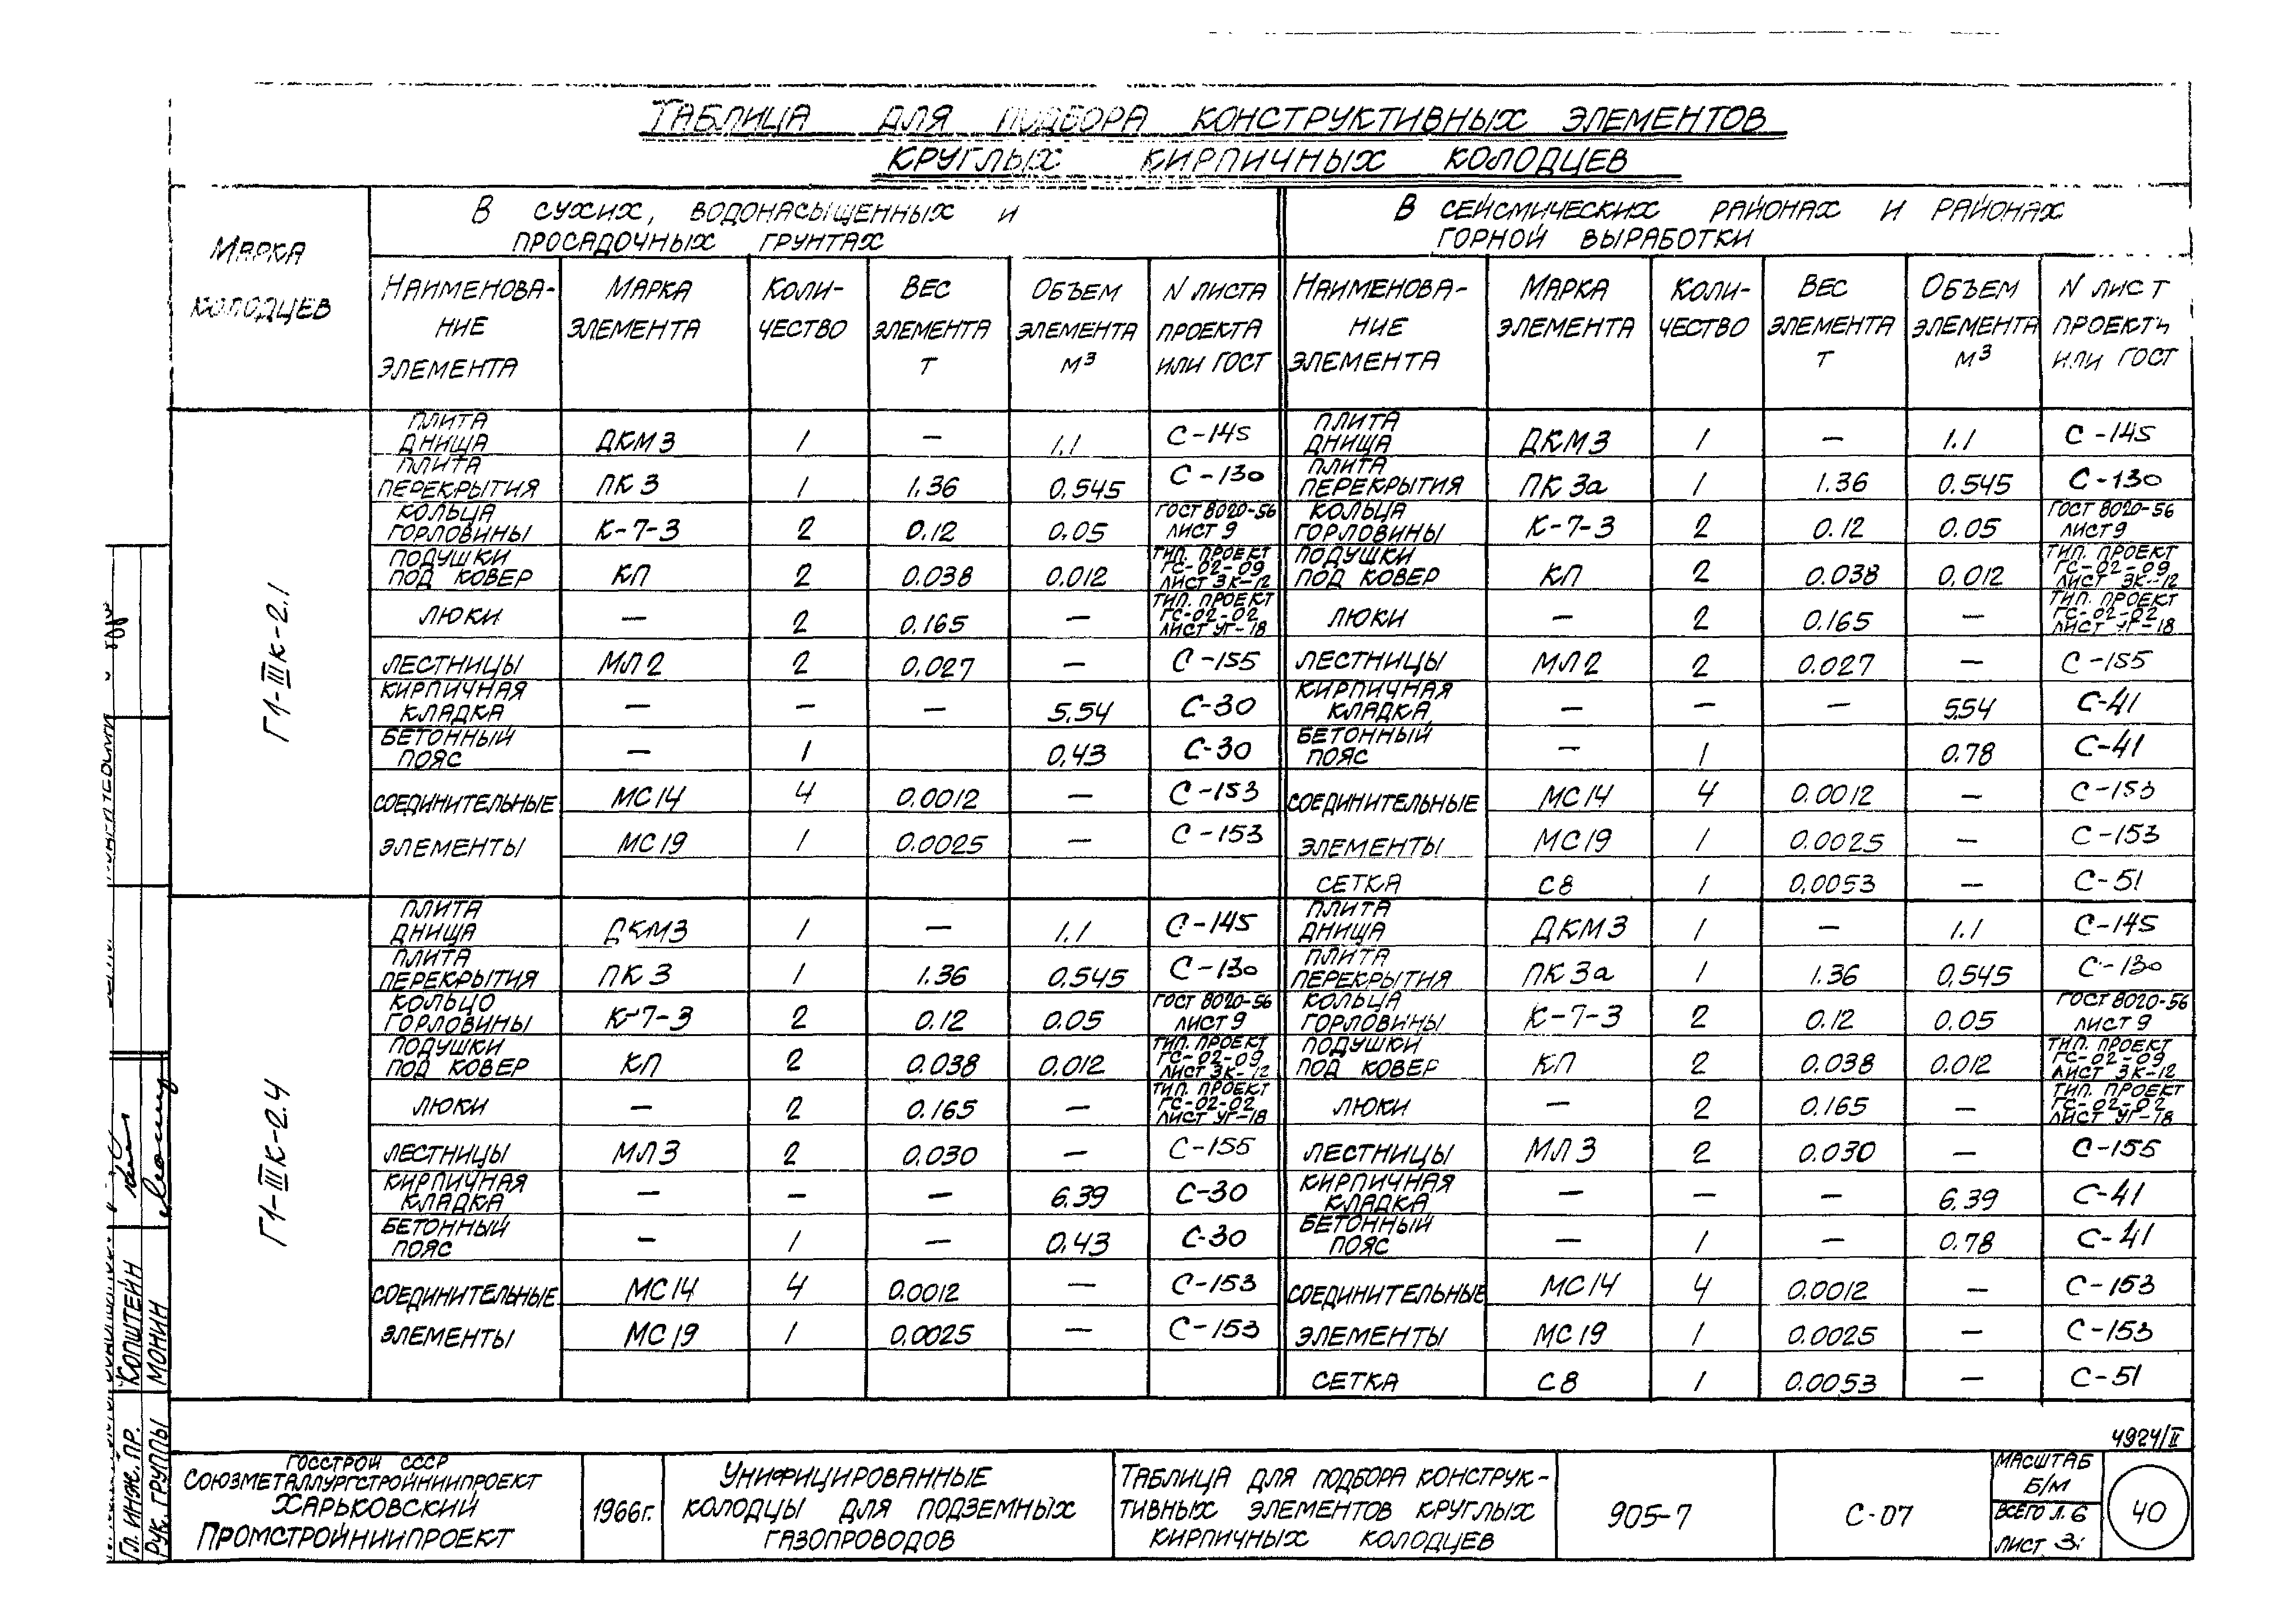 ТАБЛИЦА ДЛЯ ПОДБОРА КОНСТРУКТИВНЫХ ЭЛЕМЕНТОВ
КРУГЛЫХ КИРПИЧНЫХ КОЛОДЦЕВ
МАРКА КОЛОДЦЕВ
В СУХИХ, ВОДОНАСЫЩЕННЫХ И
ПРОСАДОЧНЫХ ГРУНТАХ
В СЕЙСМИЧЕСКИХ РАЙОНАХ И РАЙОНАХ
ГОРНОЙ ВЫРАБОТКИ
НАИМЕНОВА- МАРКА КОЛИ- ВЕС ОБЪЕМ N ЛИСТА НАИМЕНОВА- МАРКА КОЛИ- ВЕС ОБЪЕМ N ЛИСТ
НИЕ ЭЛЕМЕНТА ЧЕСТВО ЭЛЕМЕНТА ЭЛЕМЕНТА ПРОЕКТА НИЕ ЭЛЕМЕНТА ЧЕСТВО ЭЛЕМЕНТА ЭЛЕМЕНТА ПРОЕКТА
ЭЛЕМЕНТА Т М³ ИЛИ ГОСТ ЭЛЕМЕНТА Т М³ ИЛИ ГОСТ
Г1-IIIК-2.1
ПЛИТА ДНИЩА ДКМ3 1 — 1.1 С-145 ПЛИТА ДНИЩА ДКМ3 1 — 1.1 С-145
ПЛИТА ПЕРЕКРЫТИЯ ПК3 1 1.36 0.545 С-130 ПЛИТА ПЕРЕКРЫТИЯ ПК3а 1 1.36 0.545 С-130
КОЛЬЦА ГОРЛОВИНЫ К-7-3 2 0.12 0.05 ГОСТ 8020-56 ЛИСТ 9 КОЛЬЦА ГОРЛОВИНЫ К-7-3 2 0.12 0.05 ГОСТ 8020-56 ЛИСТ 9
ПОДУШКИ ПОД КОВЕР КП 2 0.038 0.012 ТИП. ПРОЕКТ ГС-02-09 ЛИСТ ЗК-12 ПОДУШКИ ПОД КОВЕР КП 2 0.038 0.012 ТИП. ПРОЕКТ ГС-02-09 ЛИСТ ЗК-12
ЛЮКИ — 2 0.165 — ТИП. ПРОЕКТ ГС-02-02 ЛИСТ УГ-18 ЛЮКИ — 2 0.165 — ТИП. ПРОЕКТ ГС-02-02 ЛИСТ УГ-18
ЛЕСТНИЦЫ МЛ2 2 0.027 — С-155 ЛЕСТНИЦЫ МЛ2 2 0.027 — С-155
КИРПИЧНАЯ КЛАДКА — — — 5.54 С-30 КИРПИЧНАЯ КЛАДКА — — — 5.54 С-41
БЕТОННЫЙ ПОЯС — 1 0.43 С-30 БЕТОННЫЙ ПОЯС — 1 0.78 С-41
СОЕДИНИТЕЛЬНЫЕ МС14 4 0.0012 — С-153 СОЕДИНИТЕЛЬНЫЕ МС14 4 0.0012 — С-153
ЭЛЕМЕНТЫ МС19 1 0.0025 — С-153 ЭЛЕМЕНТЫ МС19 1 0.0025 — С-153
СЕТКА С8 1 0.0053 — С-51
Г1-IIIК-2.4
ПЛИТА ДНИЩА ДКМ3 1 — 1.1 С-145 ПЛИТА ДНИЩА ДКМ3 1 — 1.1 С-145
ПЛИТА ПЕРЕКРЫТИЯ ПК3 1 1.36 0.545 С-130 ПЛИТА ПЕРЕКРЫТИЯ ПК3а 1 1.36 0.545 С-130
КОЛЬЦО ГОРЛОВИНЫ К-7-3 2 0.12 0.05 ГОСТ 8020-56 ЛИСТ 9 КОЛЬЦА ГОРЛОВИНЫ К-7-3 2 0.12 0.05 ГОСТ 8020-56 ЛИСТ 9
ПОДУШКИ ПОД КОВЕР КП 2 0.038 0.012 ТИП. ПРОЕКТ ГС-02-09 ЛИСТ ЗК-12 ПОДУШКИ ПОД КОВЕР КП 2 0.038 0.012 ТИП. ПРОЕКТ ГС-02-09 ЛИСТ ЗК-12
ЛЮКИ — 2 0.165 — ТИП. ПРОЕКТ ГС-02-02 ЛИСТ УГ-18 ЛЮКИ — 2 0.165 — ТИП. ПРОЕКТ ГС-02-02 ЛИСТ УГ-18
ЛЕСТНИЦЫ МЛ3 2 0.030 — С-155 ЛЕСТНИЦЫ МЛ3 2 0.030 — С-155
КИРПИЧНАЯ КЛАДКА — — — 6.39 С-30 КИРПИЧНАЯ КЛАДКА — — — 6.39 С-41
БЕТОННЫЙ ПОЯС — 1 — 0.43 С-30 БЕТОННЫЙ ПОЯС — 1 — 0.78 С-41
СОЕДИНИТЕЛЬНЫЕ МС14 4 0.0012 — С-153 СОЕДИНИТЕЛЬНЫЕ МС14 4 0.0012 — С-153
ЭЛЕМЕНТЫ МС19 1 0.0025 — С-153 ЭЛЕМЕНТЫ МС19 1 0.0025 — С-153
СЕТКА С8 1 0.0053 — С-51
4924/II
ГЛ. ИНЖ. ПР. КОПШТЕЙН
РУК. ГРУППЫ МОНИН
ГОССТРОЙ СССР
СОЮЗМЕТАЛЛУРГСТРОЙНИИПРОЕКТ
ХАРЬКОВСКИЙ
ПРОМСТРОЙНИИПРОЕКТ
1966г.
УНИФИЦИРОВАННЫЕ
КОЛОДЦЫ ДЛЯ ПОДЗЕМНЫХ
ГАЗОПРОВОДОВ
ТАБЛИЦА ДЛЯ ПОДБОРА КОНСТРУК-
ТИВНЫХ ЭЛЕМЕНТОВ КРУГЛЫХ
КИРПИЧНЫХ КОЛОДЦЕВ
905-7
С-07
МАСШТАБ
Б/М
ВСЕГО Л. 6
ЛИСТ 3
40